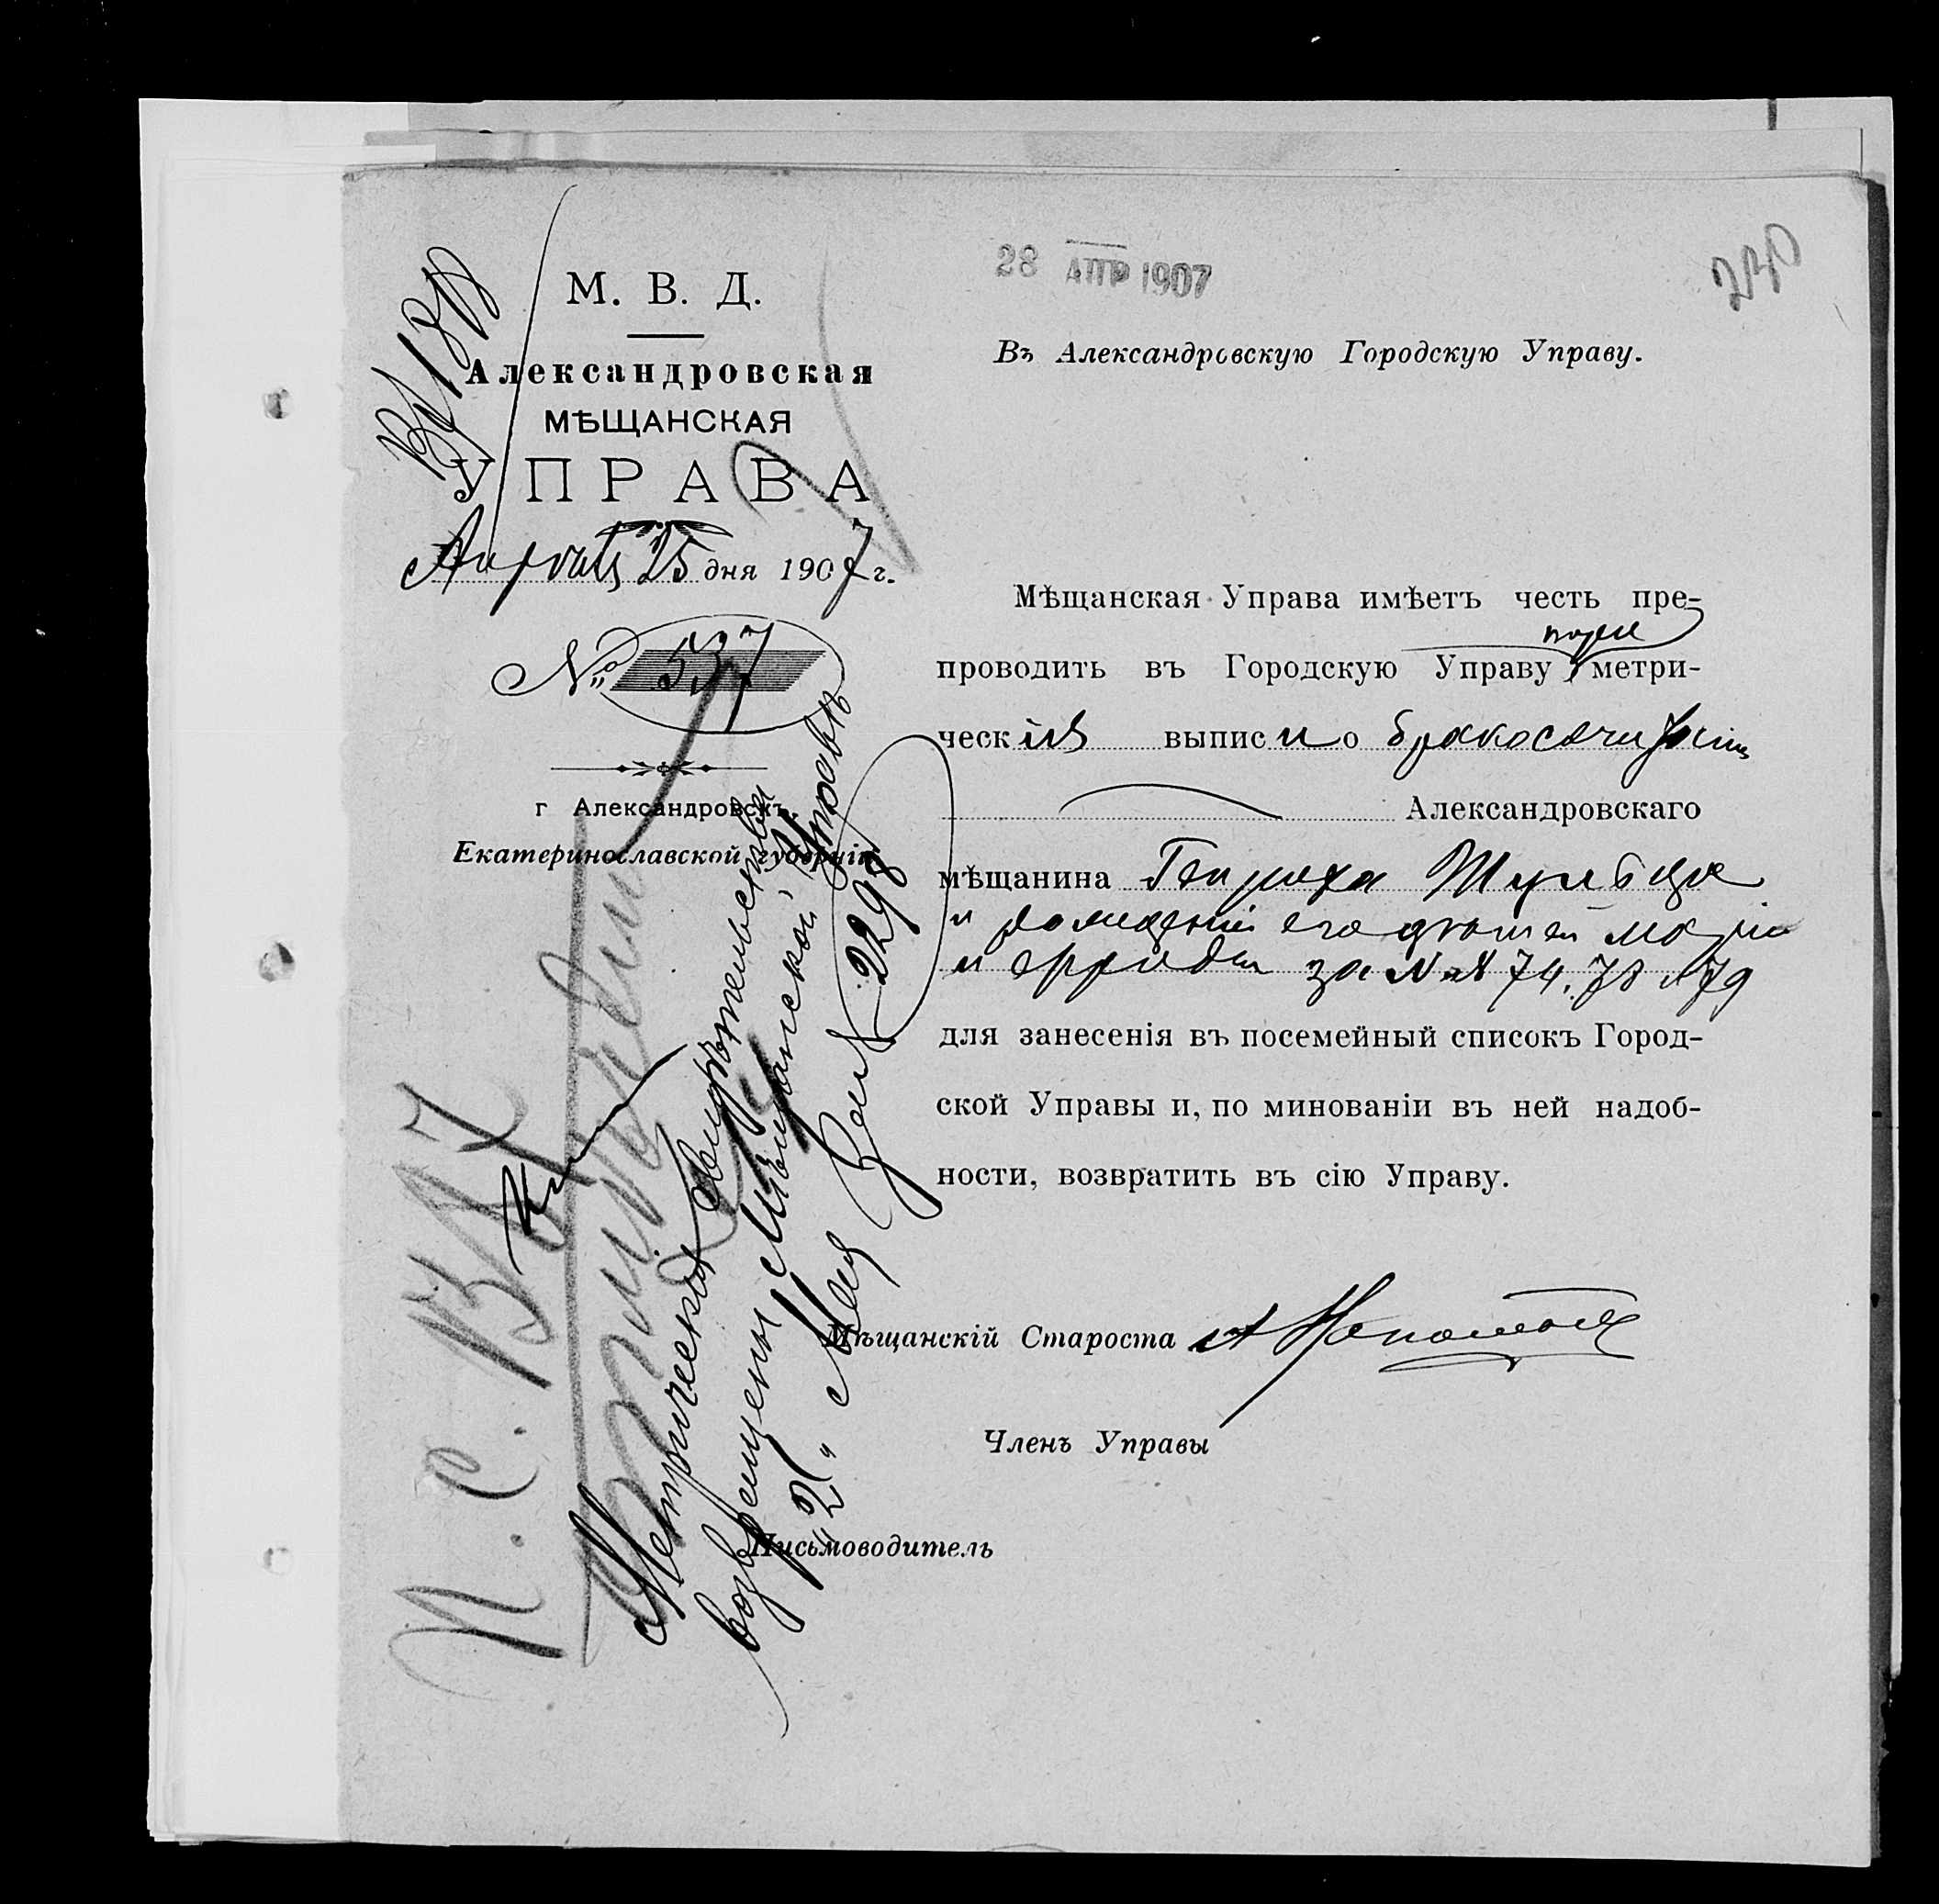 230
28 АПР 1907
М. В. Д.
Александровская
МѢЩАНСКАЯ
УПРАВА
Апрѣля 25 дня 1907 г.
№ 537
г Александровскъ.
Екатеринославской губерніи
Въ Александровскую Городскую Управу.
Мѣщанская Управа имѣетъ честь пре-
проводить въ Городскую Управу метри-
ческія выписи о бракосочетаніи
Александровскаго
мѣщанина Генриха
и рожденіи его дѣтей Маріи
и за №№ 74, 78 и 79
для занесенія въ посемейный списокъ Город-
ской Управы и, по минованіи въ ней надоб-
ности, возвратить въ сію Управу.
Мѣщанскій Староста
Членъ Управы
Письмоводитель
Метрическія свидѣтельства
возвращены Мѣщанской Управѣ
"2" Мая за № 2298